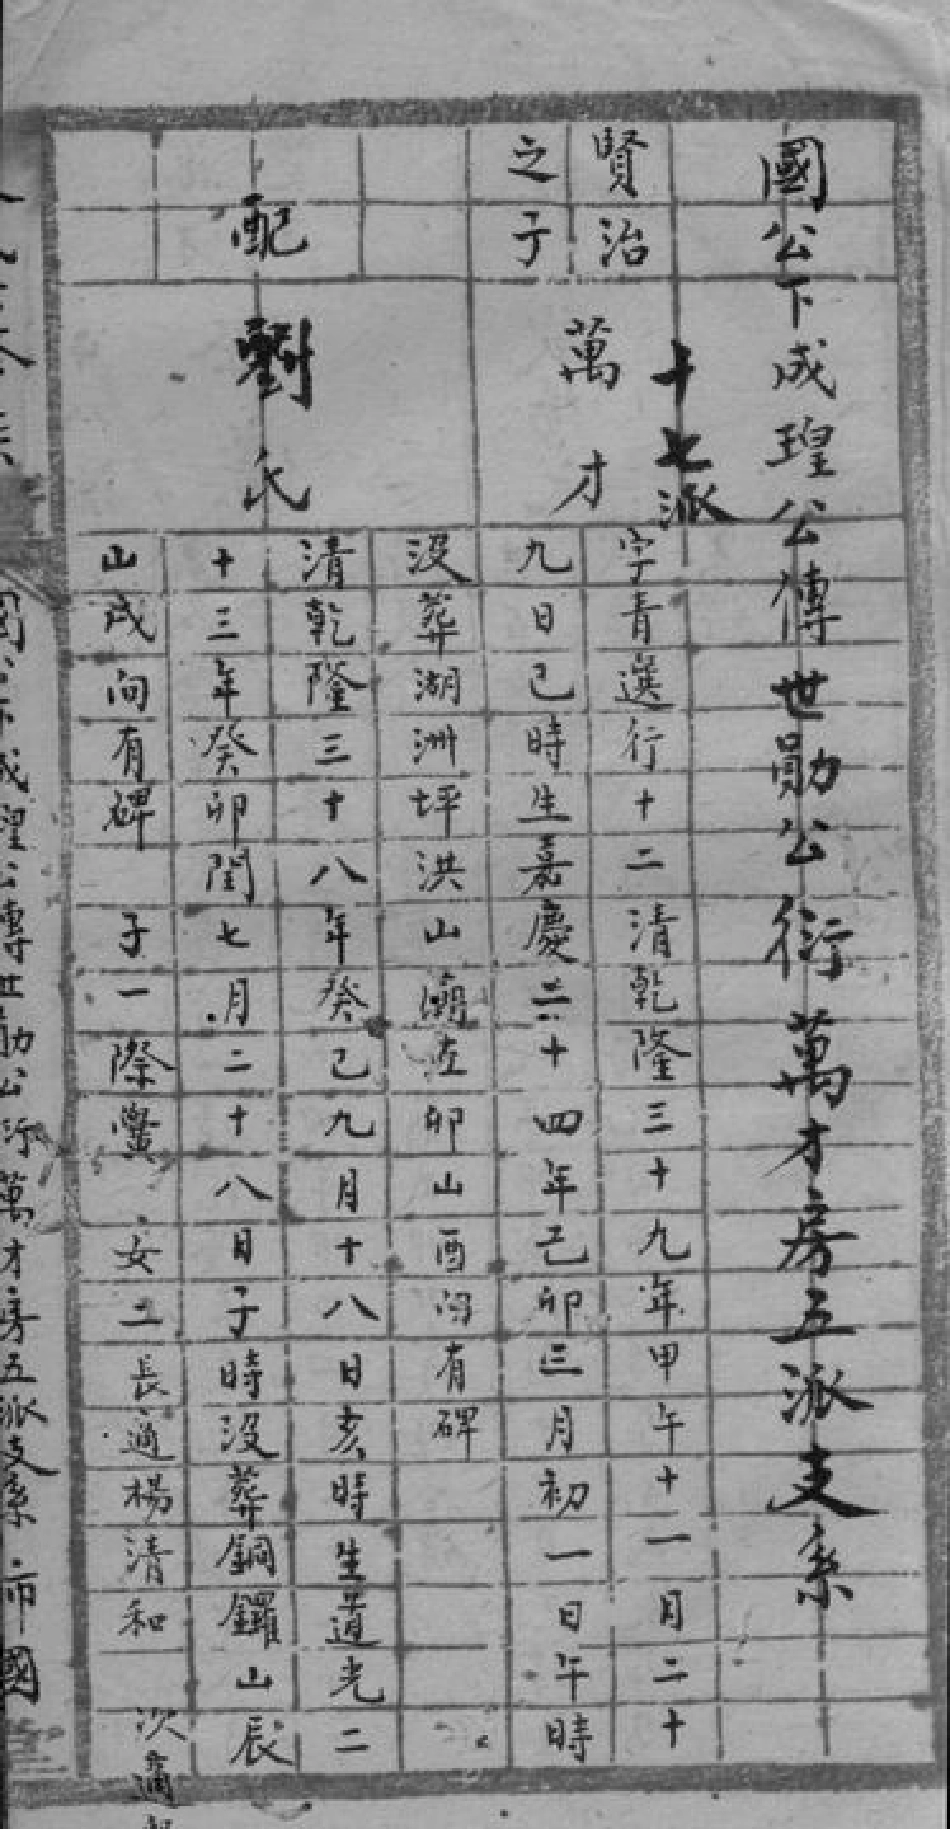 國公下成瑝公傳世勛公衍萬才房五派支系
十七派
賢治
之子
萬才
字青選行十二清乾隆三十九年甲午十一月二十
九日巳時生嘉慶二十四年己卯三月初一日午時
沒葬湖洲坪洪山廟左卯山酉向有碑
配
劉氏
清乾隆三十八年癸巳九月十八日亥時生道光二
十三年癸卯閏七月二十八日子時沒葬銅鑼山辰
山戌向有碑 子一際 女二長適楊清和 次適
國公下成瑝公傳世勛公衍萬才房五派支系 市國